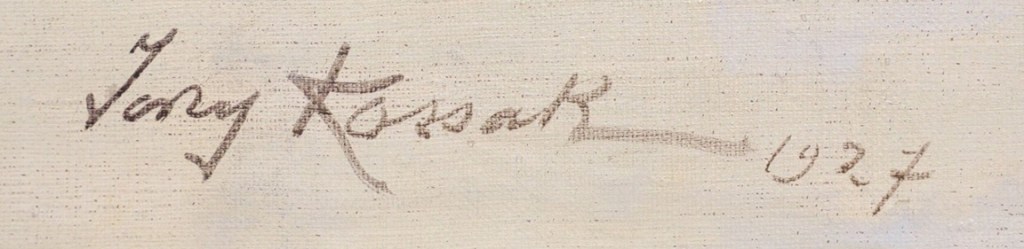 Jerzy Kossak 1927